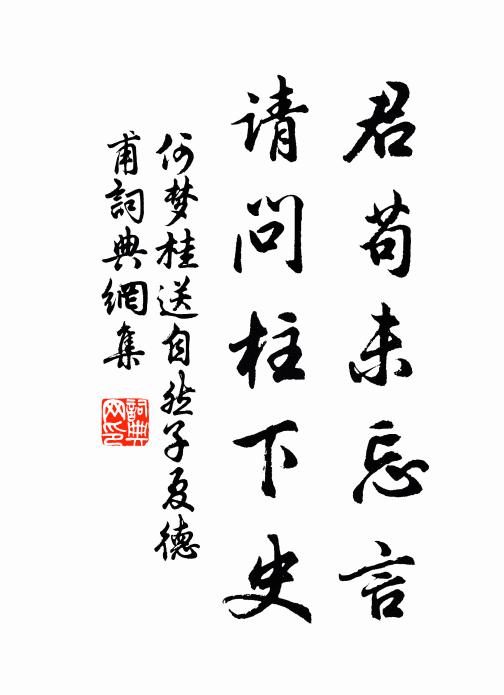 君苟未忘言
请问柱下史
何梦桂送自然子夏德
甫詞典網集
詞典
网印